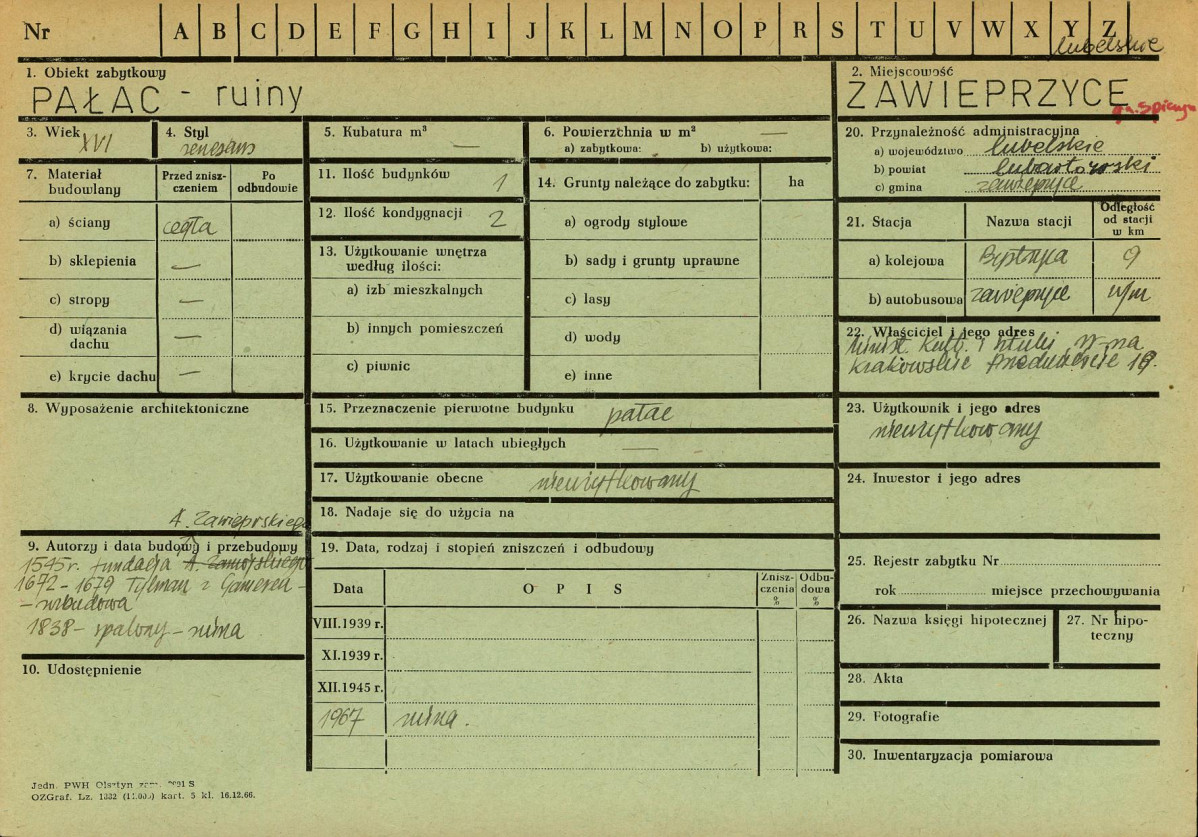 Nr A B C D E F G H I J K L M N O P R S T U V W X Y Z
lubelskie
1. Obiekt zabytkowy
PAŁAC - ruiny
2. Miejscowość
ZAWIEPRZYCE
gm. Spiczyn
3. Wiek XVI
4. Styl renesans
5. Kubatura m³ —
6. Powierzchnia w m² —
a) zabytkowa: b) użytkowa:
7. Materiał budowlany
Przed zniszczeniem
Po odbudowie
a) ściany cegła
b) sklepienia —
c) stropy —
d) wiązania dachu —
e) krycie dachu —
8. Wyposażenie architektoniczne
9. Autorzy i data budowy i przebudowy
A. Zawieprskiego
1545 r. fundacja A. Zamojskiego
1672 - 1679 Tylman z Gameren -
- rozbudowa
1838 - spalony - ruina
10. Udostępnienie
11. Ilość budynków 1
12. Ilość kondygnacji 2
13. Użytkowanie wnętrza
według ilości:
a) izb mieszkalnych
b) innych pomieszczeń
c) piwnic
14. Grunty należące do zabytku: ha
a) ogrody stylowe
b) sady i grunty uprawne
c) lasy
d) wody
e) inne
15. Przeznaczenie pierwotne budynku pałac
16. Użytkowanie w latach ubiegłych —
17. Użytkowanie obecne nieużytkowany
18. Nadaje się do użycia na
19. Data, rodzaj i stopień zniszczeń i odbudowy
Data O P I S Zniszczenia % Odbudowa %
VIII.1939 r.
XI.1939 r.
XII.1945 r.
1967 ruina.
20. Przynależność administracyjna
a) województwo lubelskie
b) powiat lubartowski
c) gmina Zawieprzyce
21. Stacja Nazwa stacji Odległość od stacji w km
a) kolejowa Bystrzyca 9
b) autobusowa Zawieprzyce w/m
22. Właściciel i jego adres
Minist. Kult. i Sztuki W-wa
Krakowskie Przedmieście
23. Użytkownik i jego adres
nieużytkowany
24. Inwestor i jego adres
25. Rejestr zabytku Nr
rok miejsce przechowywania
26. Nazwa księgi hipotecznej
27. Nr hipoteczny
28. Akta
29. Fotografie
30. Inwentaryzacja pomiarowa
Jedn. PWH Olsztyn zam. S
OZGraf. Lz. 1332 kart. 5 kl. 16.12.66.